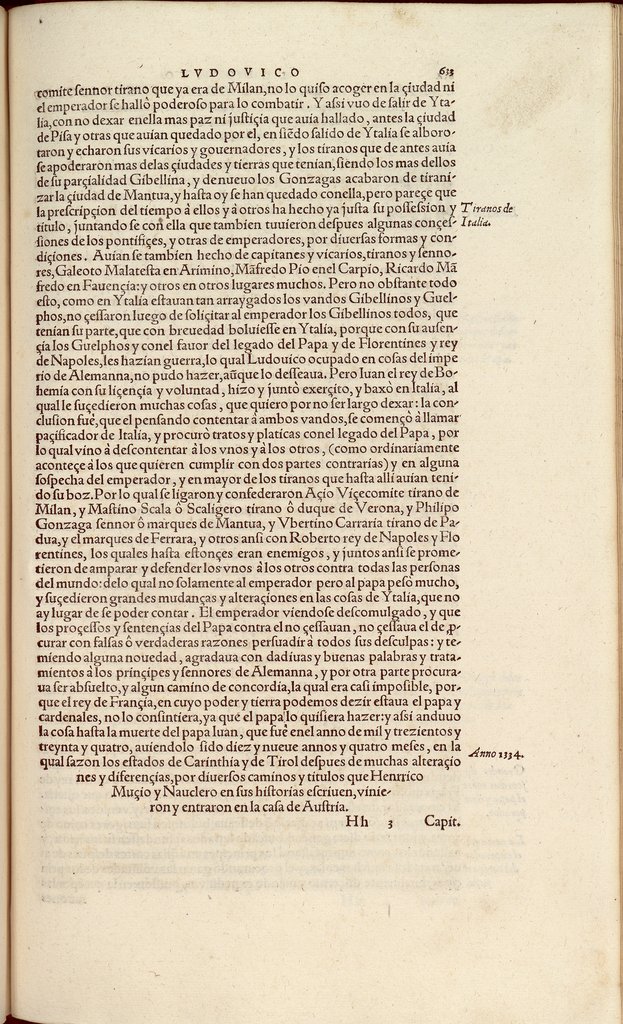 LVDOVICO 633
comite sennor tirano que ya era de Milan, no lo quiso acoger en la çiudad ni
el emperador se hallò poderoso para lo combatir. Y assi vuo de salir de Yta-
lia, con no dexar enella mas paz ni justiçia que auia hallado, antes la çiudad
de Pisa y otras que auian quedado por el, en siẽdo salido de Ytalia se alboro-
taron y echaron sus vicarios y gouernadores, y los tiranos que de antes auia
se apoderaron mas delas çiudades y tierras que tenian, siendo los mas dellos
de su parçialidad Gibellina, y de nueuo los Gonzagas acabaron de tirani-
zar la çiudad de Mantua, y hasta oy se han quedado conella, pero pareçe que
la prescripçion del tiempo à ellos y à otros ha hecho ya justa su possession y
titulo, juntando se con ella que tambien tuuieron despues algunas conçes-
siones de los pontifiçes, y otras de emperadores, por diuersas formas y con-
diçiones. Auian se tambien hecho de capitanes y vicarios, tiranos y senno-
res, Galeoto Malatesta en Arimino, Mãfredo Pio enel Carpio, Ricardo Mã
fredo en Fauençia: y otros en otros lugares muchos. Pero no obstante todo
esto, como en Ytalia estauan tan arraygados los vandos Gibellinos y Guel-
phos, no çessaron luego de soliçitar al emperador los Gibellinos todos, que
tenian su parte, que con breuedad boluiesse en Ytalia, porque con su ausen-
çia los Guelphos y conel fauor del legado del Papa y de Florentines y rey
de Napoles, les hazian guerra, lo qual Ludouico ocupado en cosas del impe
rio de Alemanna, no pudo hazer, aũque lo desseaua. Pero Iuan el rey de Bo-
hemia con su liçençia y voluntad, hizo y juntò exerçito, y baxò en Italia, al
qual le suçedieron muchas cosas, que quiero por no ser largo dexar: la con-
clusion fuè, que el pensando contentar à ambos vandos, se començò à llamar
paçificador de Italia, y procurò tratos y platicas conel legado del Papa, por
lo qual vino à descontentar à los vnos y à los otros, (como ordinariamente
aconteçe à los que quieren cumplir con dos partes contrarias) y en alguna
sospecha del emperador, y en mayor de los tiranos que hasta alli auian teni-
do su boz. Por lo qual se ligaron y confederaron Açio Viçecomite tirano de
Milan, y Mastino Scala ô Scaligero tirano ô duque de Verona, y Philipo
Gonzaga sennor ô marques de Mantua, y Vbertino Carraria tirano de Pa-
dua, y el marques de Ferrara, y otros ansi con Roberto rey de Napoles y Flo
rentines, los quales hasta estonçes eran enemigos, y juntos ansi se prome-
tieron de amparar y defender los vnos à los otros contra todas las personas
del mundo: delo qual no solamente al emperador pero al papa pesò mucho,
y suçedieron grandes mudanças y alteraçiones en las cosas de Ytalia, que no
ay lugar de se poder contar. El emperador viendose descomulgado, y que
los proçessos y sentençias del Papa contra el no çessauan, no çessaua el de ꝓ
curar con falsas ô verdaderas razones persuadir à todos sus desculpas: y te-
miendo alguna nouedad, agradaua con dadiuas y buenas palabras y trata-
mientos à los prinçipes y sennores de Alemanna, y por otra parte procura-
ua ser absuelto, y algun camino de concordia, la qual era casi imposible, por-
que el rey de Françia, en cuyo poder y tierra podemos dezir estaua el papa y
cardenales, no lo consintiera, ya que el papa lo quisiera hazer: y assi anduuo
la cosa hasta la muerte del papa Iuan, que fuè enel anno de mil y trezientos y
treynta y quatro, auiendolo sido diez y nueue annos y quatro meses, en la
qual sazon los estados de Carinthia y de Tirol despues de muchas alteraçio
nes y diferençias, por diuersos caminos y titulos que Henrrico
Muçio y Nauclero en sus historias escriuen, vinie-
ron y entraron en la casa de Austria.
Hh 3 Capit.
Tiranos de
Italia.
Anno 1334.